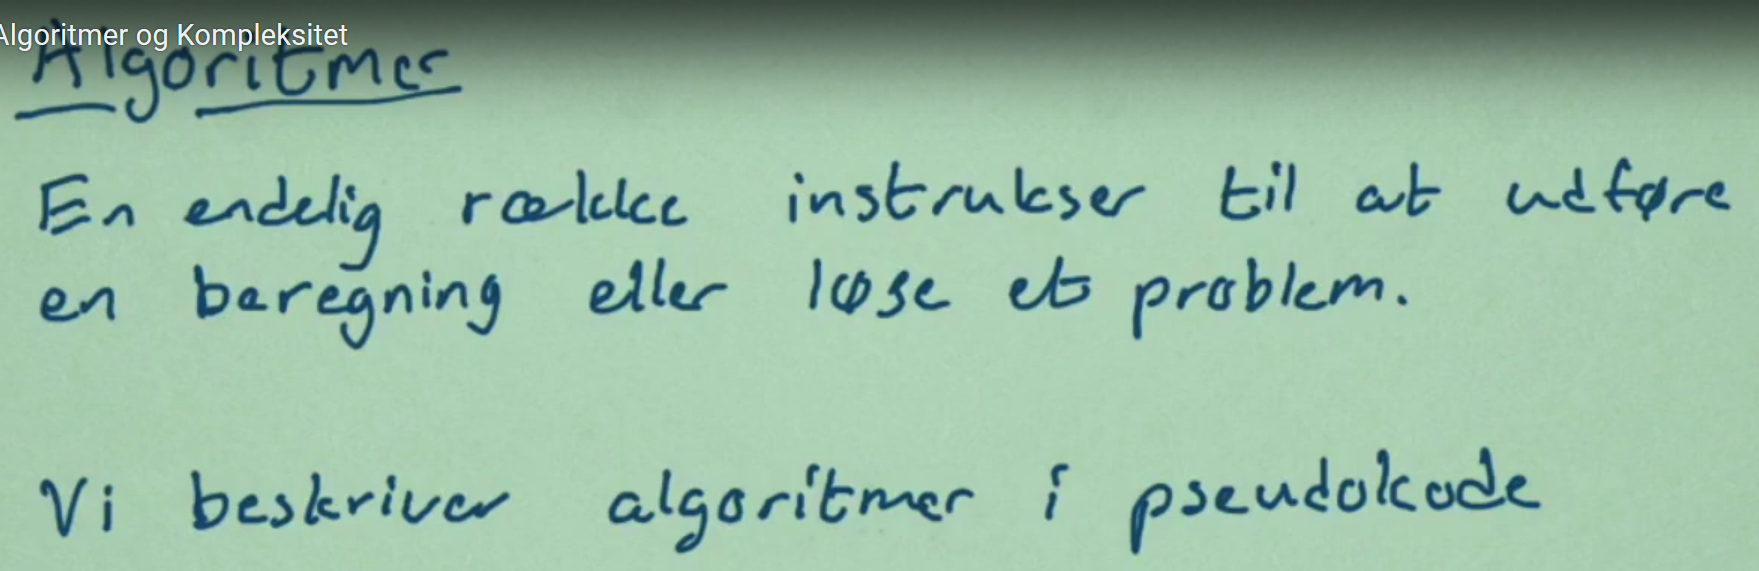 Algoritmer og Kompleksitet
Algoritmer
En endelig række instrukser til at udføre
en beregning eller løse et problem.
Vi beskriver algoritmer i pseudokode